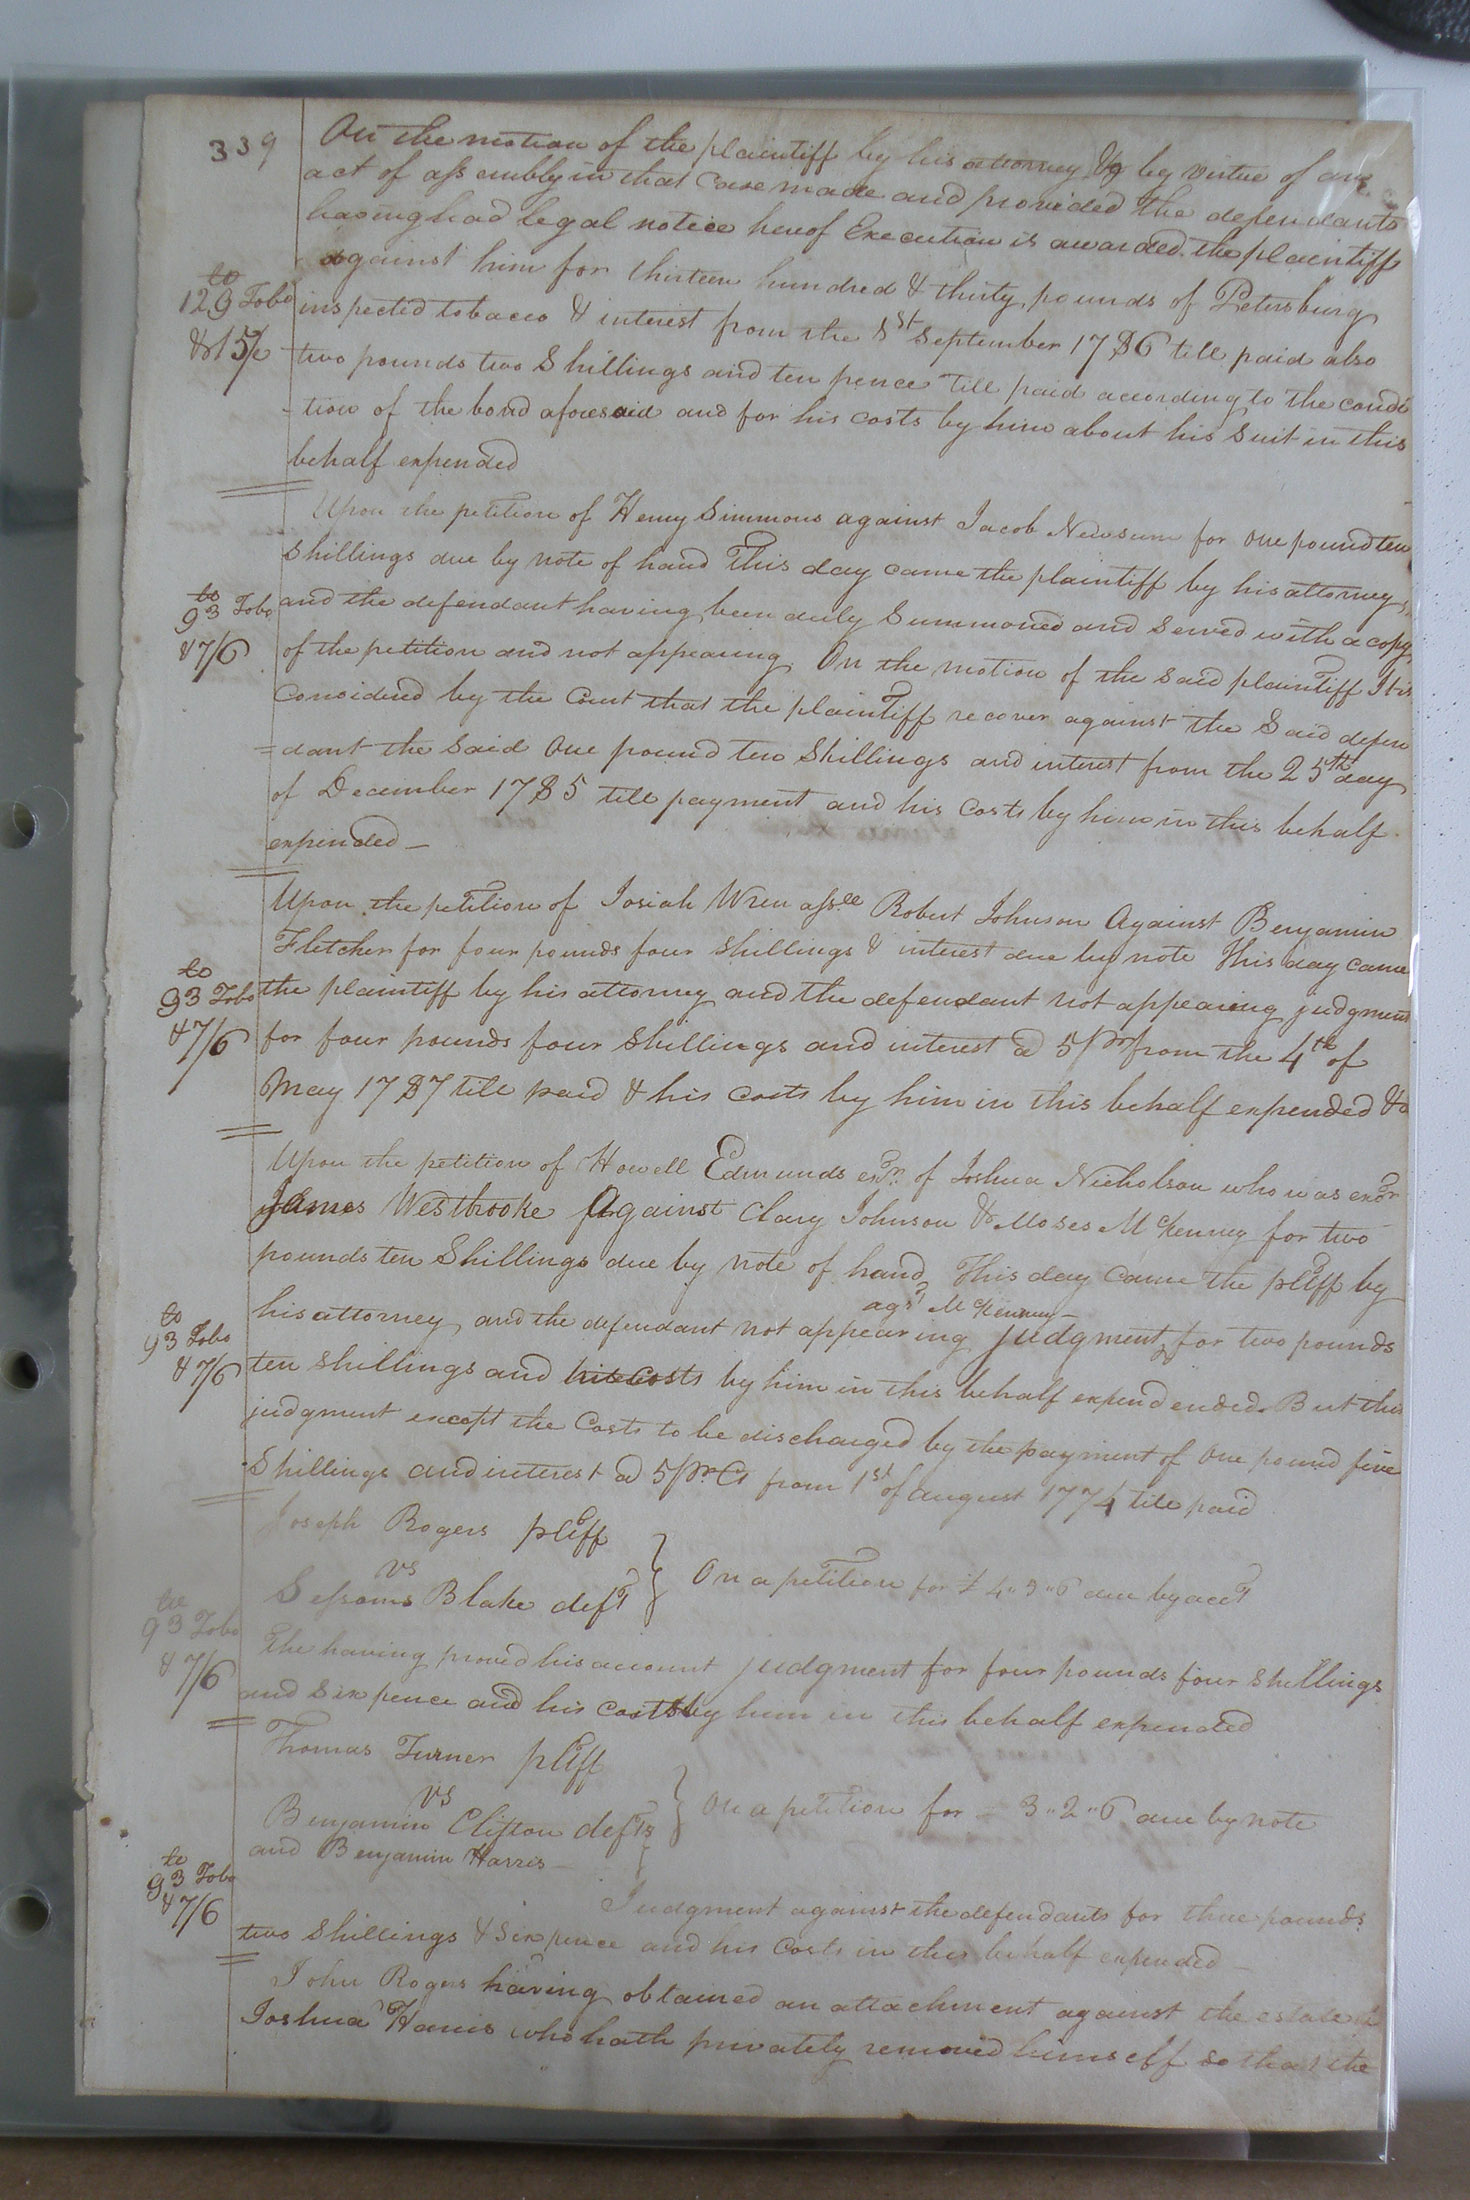 339
On the motion of the plaintiff by his attorney & by virtue of an
act of assembly in that Case made and provided the defendants
having had legal notice hereof Execution is awarded the plaintiff
against him for thirteen hundred & thirty pounds of Petersburg
to
129 Tobo
inspected tobacco & interest from the 1st September 1786 till paid also
&15/
two pounds two Shillings and ten pence till paid according to the condi
-tion of the bond aforesaid and for his costs by him about his Suit in this
behalf expended
Upon the petition of Henry Simmons against Jacob Newsum for one pound ten
Shillings due by note of hand This day came the plaintiff by his attorney
to
93 Tobo
and the defendant having been duly Summoned and Served with a copy
&7/6
of the petition and not appearing On the motion of the said plaintiff It is
Considered by the Court that the plaintiff recover against the Said defen
=dant the Said One pound ten Shillings and interest from the 25th day
of December 1785 till payment and his Costs by him in this behalf
expended -
Upon the petition of Josiah Wren assee Robert Johnson Against Benjamin
Fletcher for four pounds four Shillings & interest due by note This day came
to
93 Tobo
the plaintiff by his attorney and the defendant not appearing judgment
&7/6
for four pounds four Shillings and interest @ 5/pr from the 4th of
May 1787 till paid & his Costs by him in this behalf expended &
Upon the petition of Howell Edmunds exor of Joshua Nicholson who was exor
James Westbrooke Against Clary Johnson & Moses McKenney for two
pounds ten Shillings due by note of hand This day Came the pltff by
agst McKenney -
to
93 Tobo
his attorney, and the defendant not appearing judgment for two pounds
&7/6
ten shillings and his Costs by him in this behalf expend ended. But this
judgment except the Costs to be discharged by the payment of One pound five
Shillings and interest @ 5/Pr Ct from 1st of august 1774 till paid
Joseph Rogers pltff
vs
Sessoms Blake deft
On a petition for £ 4"3"6 due by acct
to
93 Tobo
The having proved his account judgment for four pounds four shillings
&7/6
and six pence and his costs by him in this behalf expended
Thomas Turner pltff
vs
Benjamin Clifton defts
and Benjamin Harris -
On a petition for - 3"2"6 due by note
to
93 Tobo
&7/6
Judgment against the defendants for three pounds
two Shillings & Six pence and his Costs in this behalf expended -
John Rogers having obtained an attachment against the estate of
Joshua Harris who hath privately removed himself so that the